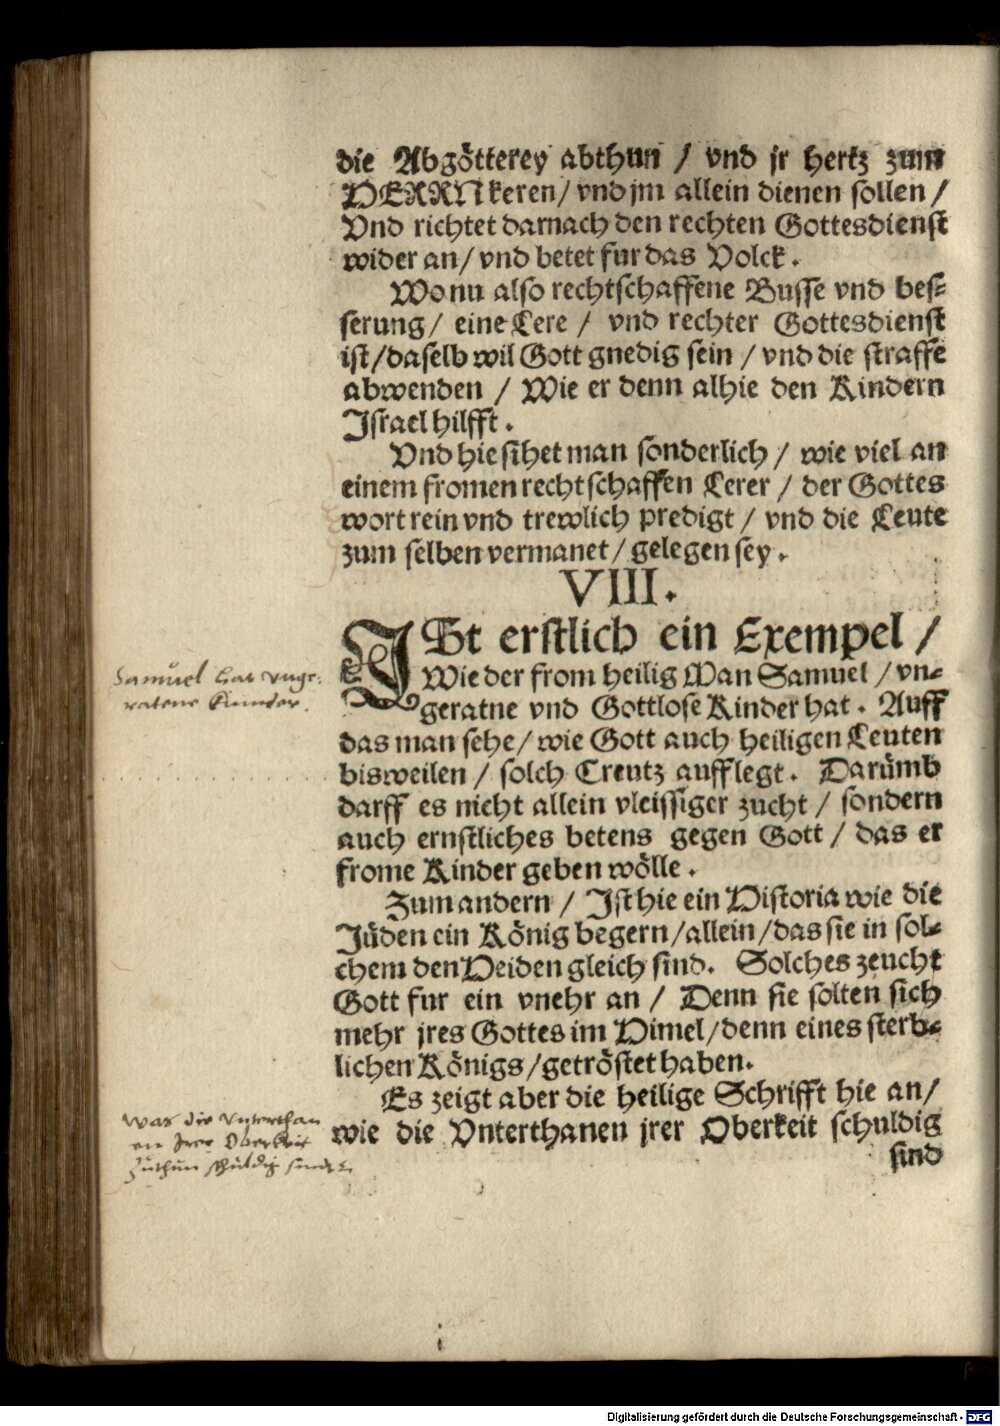 die Abgötterey abthun / vnd jr hertz zum
HERRN keren / vnd jm allein dienen sollen /
Vnd richtet darnach den rechten Gottesdienst
wider an / vnd betet fur das Volck.
Wo nu also rechtschaffene Busse vnd bes-
serung / eine Lere / vnd rechter Gottesdienst
ist / daselb wil Gott gnedig sein / vnd die straffe
abwenden / Wie er denn alhie den Kindern
Israel hilfft.
Vnd hie sihet man sonderlich / wie viel an
einem fromen rechtschaffen Lerer / der Gottes
wort rein vnd trewlich predigt / vnd die Leute
zum selben vermanet / gelegen sey.
VIII.
ISt erstlich ein Exempel /
Samuel hat unge-
Wie der from heilig Man Samuel / vn-
ratene Kinder.
geratne vnd Gottlose Kinder hat. Auff
das man sehe / wie Gott auch heiligen Leuten
bisweilen / solch Creutz aufflegt. Darümb
darff es nicht allein vleissiger zucht / sondern
auch ernstliches betens gegen Gott / das er
frome Kinder geben wölle.
Zum andern / Ist hie ein Historia wie die
Jüden ein König begern / allein / das sie in sol-
chem den Heiden gleich sind. Solches zeucht
Gott fur ein vnehr an / Denn sie solten sich
mehr jres Gottes im Himel / denn eines sterb-
lichen Königs / getröstet haben.
Es zeigt aber die heilige Schrifft hie an /
Was die Vnterthan
wie die Vnterthanen jrer Oberkeit schuldig
en Irer Oberkeit
zuthun schuldig sind
sind
Digitalisierung gefördert durch die Deutsche Forschungsgemeinschaft - DFG